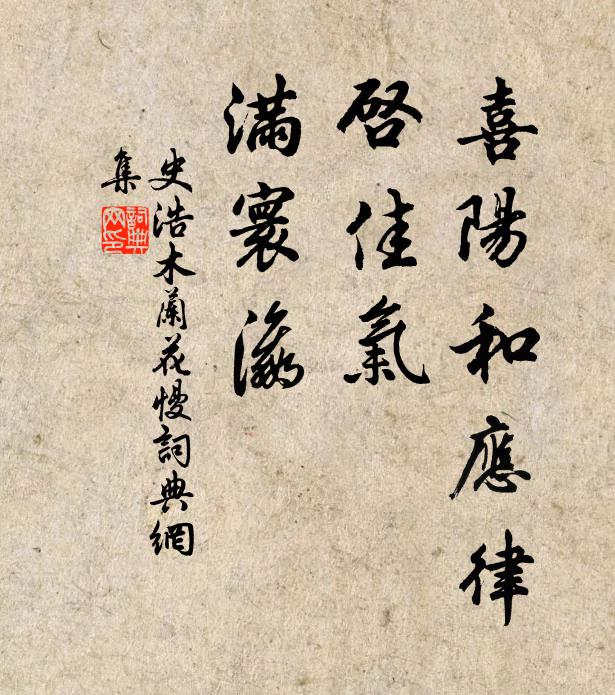 喜陽和應律
啓佳氣
滿寰瀛
史浩木蘭花慢詞典網
集
詞典
网印